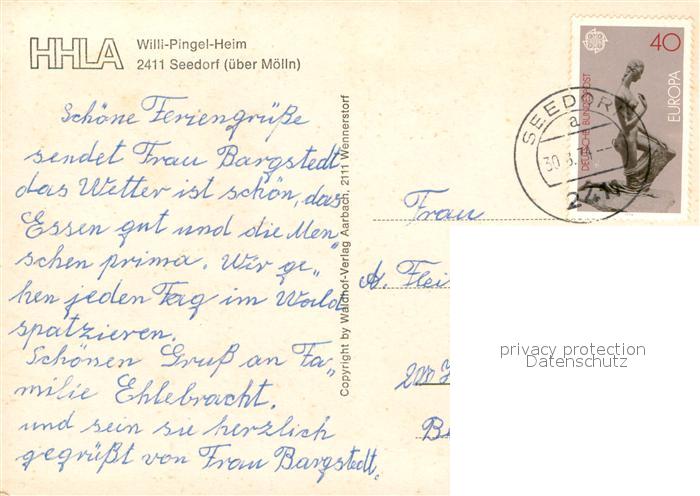 HHLA
Willi-Pingel-Heim
2411 Seedorf (über Mölln)
Schöne Feriengrüße
sendet Frau Bargstedt
das Wetter ist schön, das
Essen gut und die Men
schen prima. Wir ge„
hen jeden Tag im Wald
spatzieren.
Schönen Gruß an Fa„
milie Ehlebracht.
und sein sie herzlich
gegrüßt von Frau Bargstedt.
Copyright by Waldhof-Verlag Aarbach, 2111 Wennerstorf
40
EUROPA
DEUTSCHE BUNDESPOST
SEEDORF
a
Frau
A. Flei
privacy protection
Datenschutz